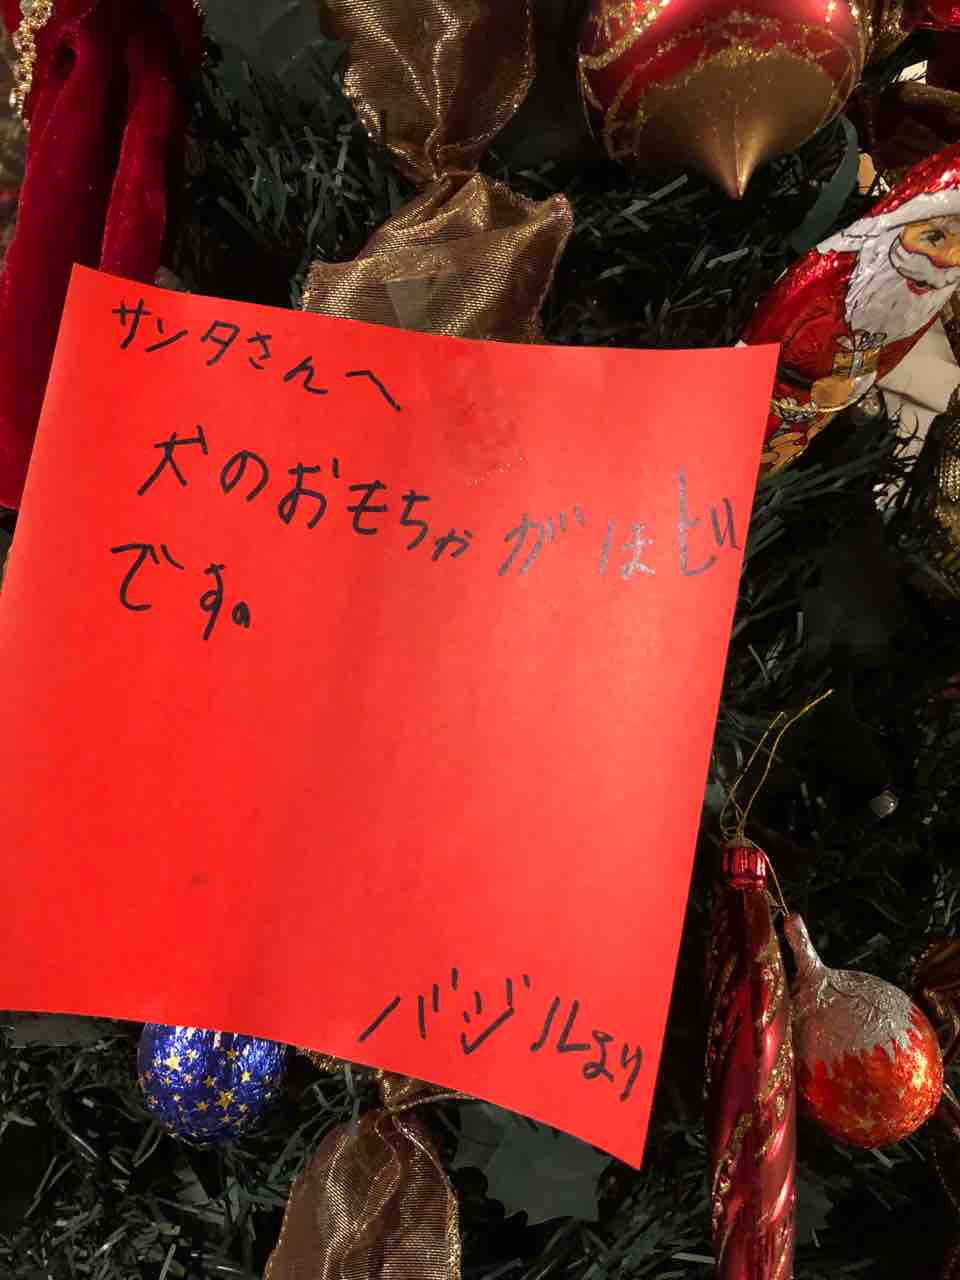 サンタさんへ
犬のおもちゃがほしい
です。
バジルより